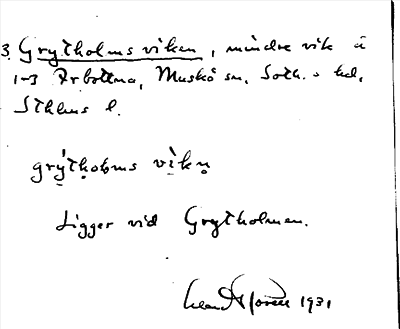 3. Grytholmsviken, mindre vik å
1-3 Arbottna, Muskö sn, Soth. s hd,
Sthlms l.
grýthoḷms vìkṇ
Ligger vid Grytholmen.
1931